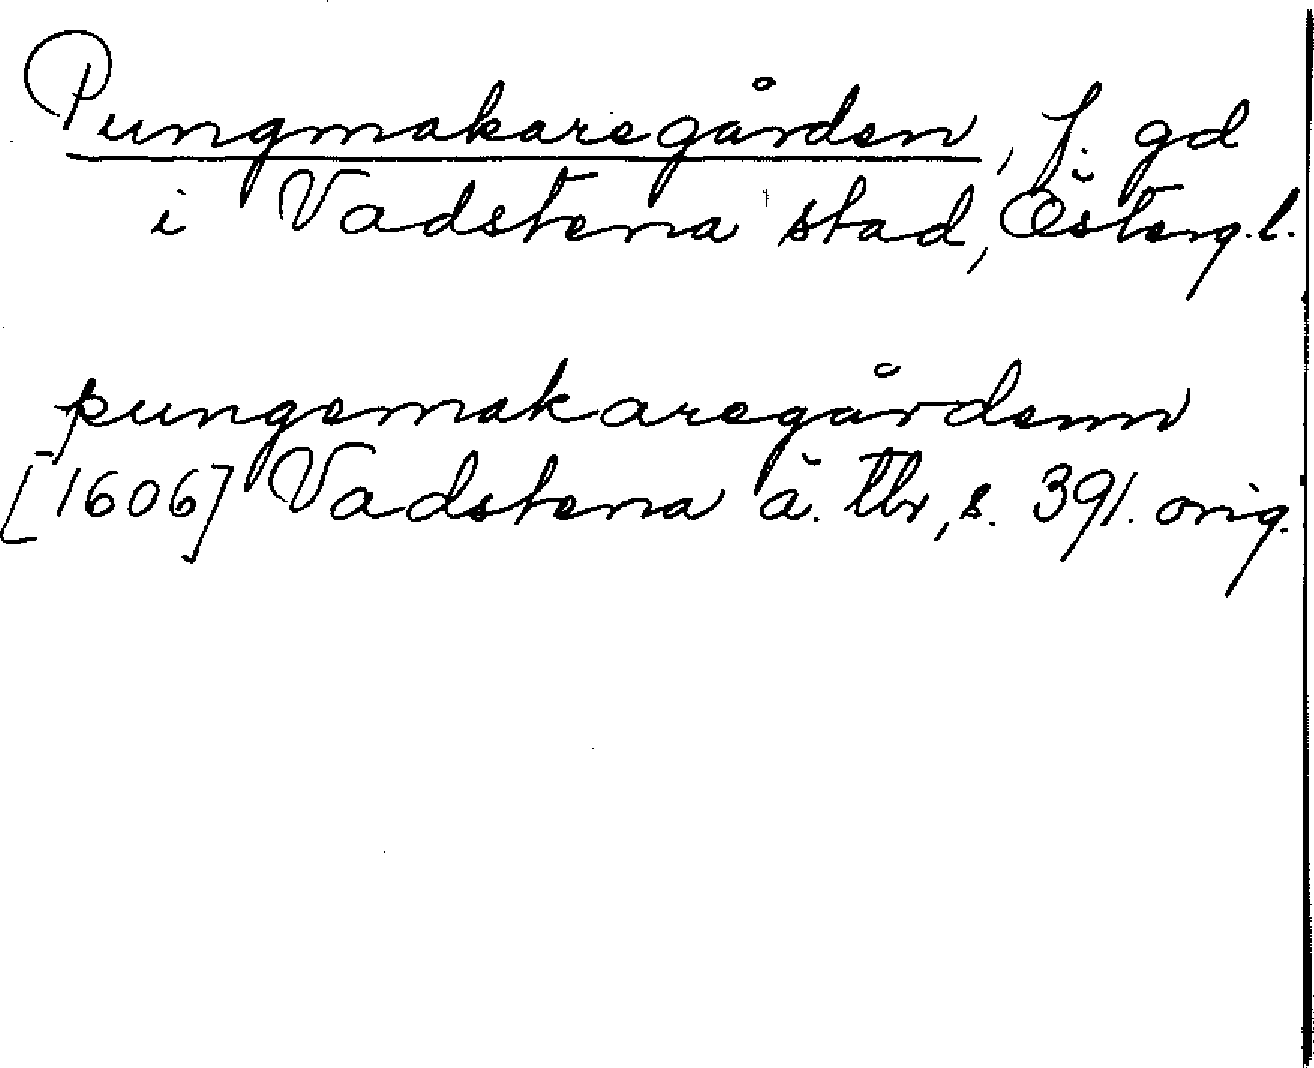 Pungmakaregården, f. gd
i Vadstena stad, Österg.l.
pungemakaregårdenn
[1606] Vadstena ä. tb, s. 391. orig.